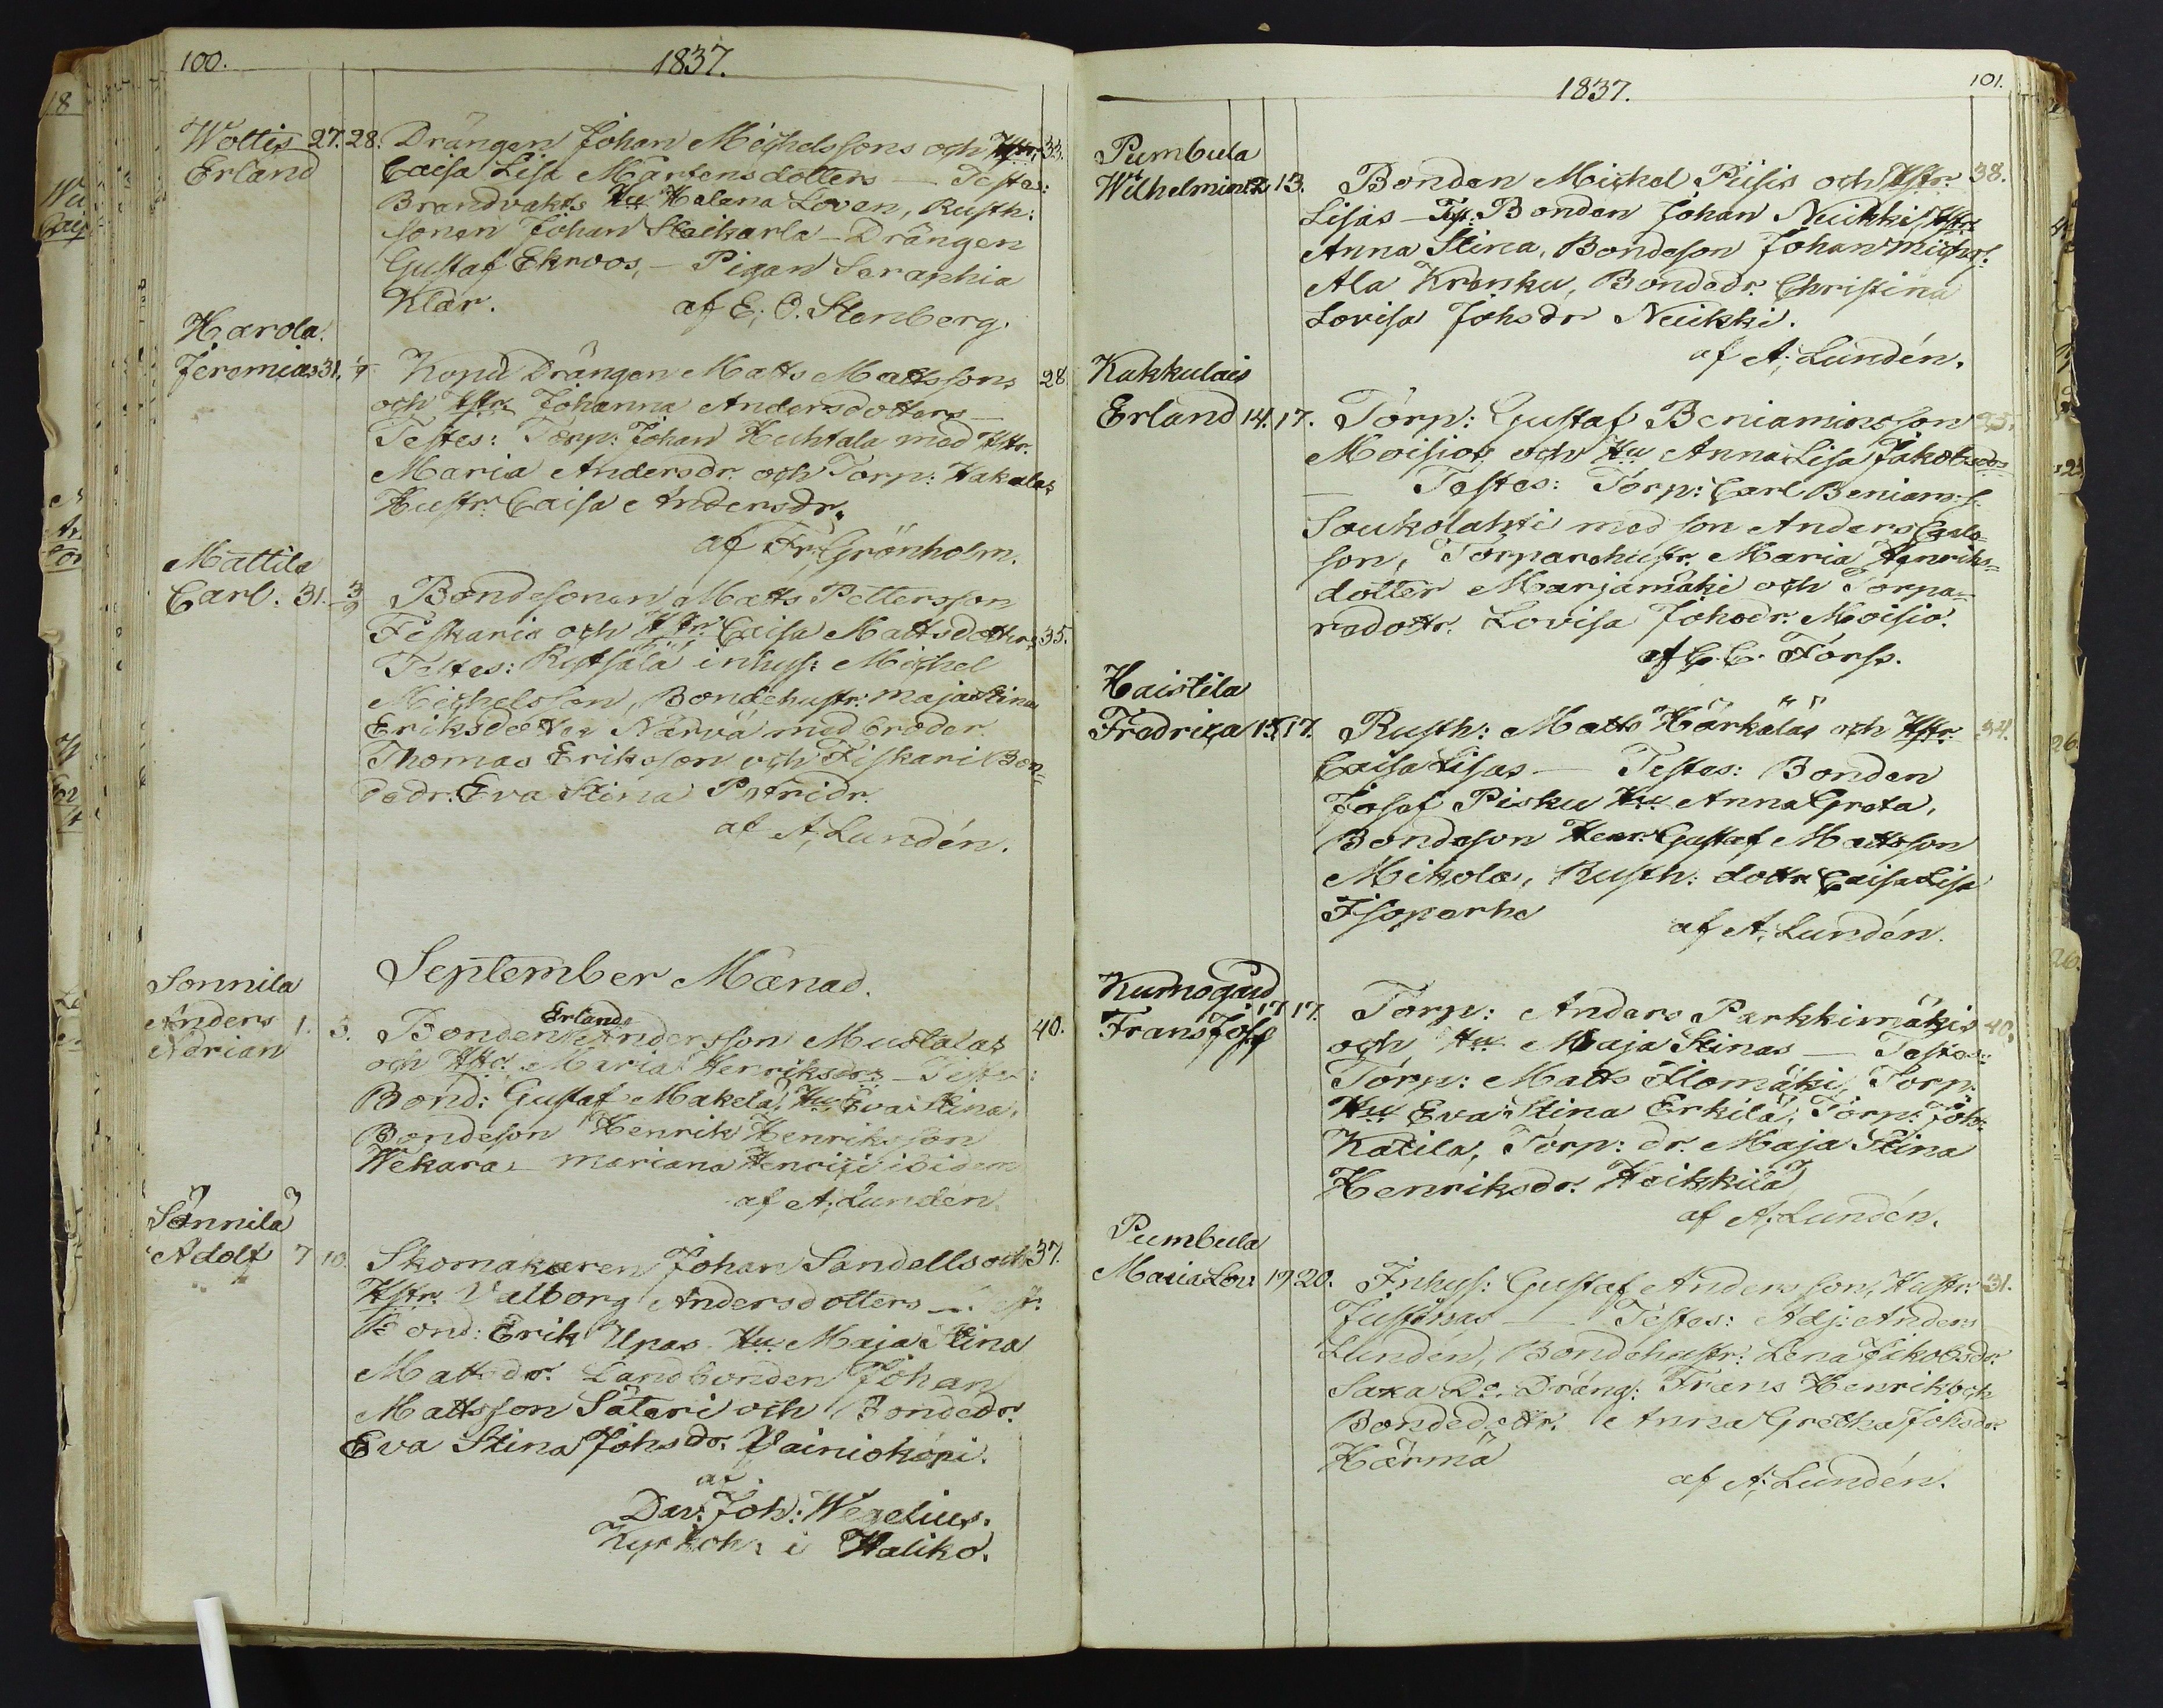 100.
1837.
Woltis 27. 28. Drängen Johan Michelssons och Hstr. 33.
Erland Caisa Lisa Mårtensdotters — Testes:
Brandvakts Hu Helena Loven, Rusth:
sonen Johan Skaikarla — Drängen
Gustaf Ekroos, — Pigan Seraphia
Klar. af E. O. Stenberg.
Harola
Jeremias 31. Konu Drängen Matts Mattssons 28
och Hstr. Johanna Andersdotters —
Testes: Torp: Johan Huhtala med Hstr.
Maria Andersdr. och Torp: Hakalas
Hustr. Caisa Andersdr.
af Fr. Grönholm.
Mattila
Carl. 31. 3/9 Bondesonen Matts Pettersson
Fiskaris och Hstr. Caisa Mattsdotters 35.
Testes: Ristsälä inhys: Michel
Michelsson, Bondehustr: Maja Stina
Eriksdotter Närvä med broder
Thomas Eriksson och Fiskari Bon=
dedr. Eva Stina Petridr.
af A. Lundén.
September Månad.
Sonnila
Anders 1. 3. Bonden Erland Anderssson Mustalas 40.
Adrian och Hstr. Maria Henriksdrs — Testes:
Bond: Gustaf Mäkelä, Hu Eva Stina,
Bondeson Henrik Henriksson
Wekara, — Mariana Henrici ibidem
af A. Lundén.
Sonnila
Adolf 7 10. Skomakaren Johan Sandells och 37.
Hstr. Valborg Andersdotters —
Bond: Erik Upas Hu Maja Stina
Mattsdr. Landbonden Johan
Mattsson Säteri och Bondedr.
Eva Stina Johsdr. Vainiokäpi.
af
Dav: Joh: Wegelius.
Kyrkoh: i Haliko.
1837.
101.
Pumbula
Wilhelmina 12 13. Bonden Michel Piisis och Hstr. 38.
Lisas — Tst: Bonden Johan Neikki Hstr.
Anna Stina, Bondeson Johan Michels:
Ala Kranku, Bondedr. Christina
Lovisa Johsdr Neikki.
af A. Lundén.
Kukkulais
Erland 14. 17. Torp: Gustaf Beniaminsson 25.
Moisios och Hu Anna Lisa Jakobsdrs
— Testes: Torp: Carl Beniam:s:
Soukolahti med son Anders Carls=
son, Torparehustr. Maria Henriks=
dotter Marjamäki och Torpa=
redottr. Lovisa Johsdr. Moisio.
af C. C. Forss.
Haistila
Fredrica 15 17. Rusth: Matts Härkäläs och Hstr. 34.
Caisa Lisas — Testes: Bonden
Josef Pisku Hu Anna Greta,
Bondeson Henr. Gustaf Mattsson
Mikola, Rusth: dottr Caisa Lisa
Isoperhe af A. Lundén.
Kumogård
Frans Josef 17 17. Torp: Anders Parkkimäkis 40.
och Hu Maja Stinas — Testes:
Torp: Matts Ilomäki, Torp:
Hu Eva Stina Erkilä, Torp: Joh:
Katila, Torp: dr. Maja Stina
Henriksdr. Heikkilä
af A. Lundén.
Pumbula
Maria Lov: 17 20. Inhys: Gustaf Andersson, Hustr: 31.
Justinas — Testes: Adj: Anders
Lundén, Bondehustr: Lena Jakobsdr.
Saxa Do. Dräng: Frans Henrik och
Bondedottr. Anna Gretha Johsdr.
Härmä
af A. Lundén.